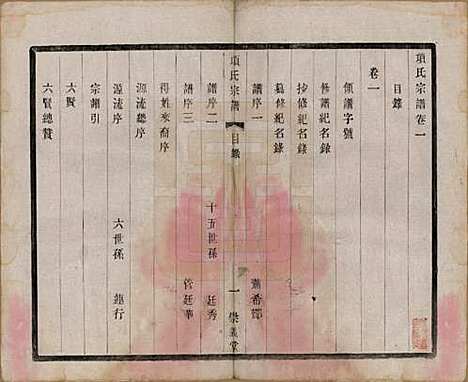 項氏宗譜卷一
目錄
卷一
領譜字號
修譜紀名錄
按修紀名錄
纂修紀名錄
譜序一 蕭希鄮
項氏宗譜 目錄 一 崇義堂
譜序二 十五世孫 廷秀
譜序三 管廷華
得姓來裔序
源流序 六世孫 鍾行
宗譜引
六賢
六賢總贊